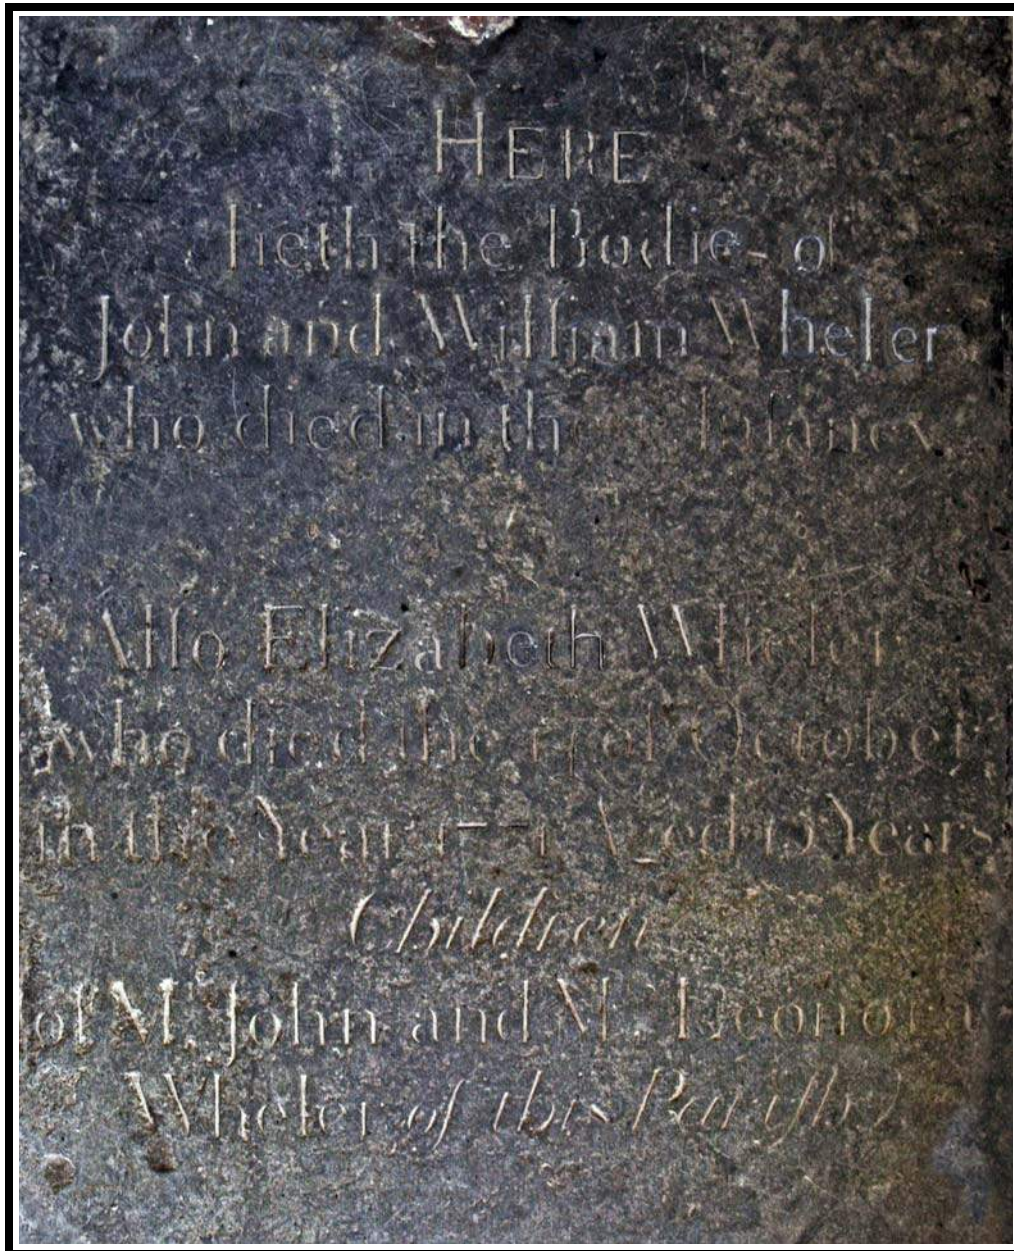 HERE
lieth the Bodie of
John and William Wheler
who died in their Infancy
Alſo Elizabeth Wheler
who died the of October
in the Year Aged Years
Children
of Mr. John and Mrs. Eleonora
Wheler of this Pariſh